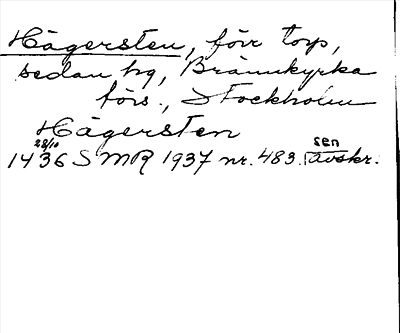 Hägersten, förr torp,
sedan hg, Brännkyrka
förs., Stockholm
Hägersten
28/10 sen
1436 SMR 1937 nr. 483. avskr.